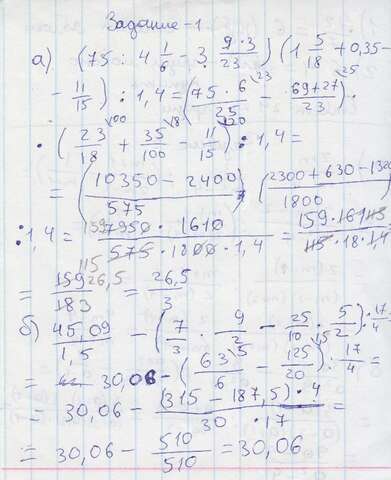 Задание-1
а) (75 : 4 1/6 - 3 9·3/23) (1 5/18 + 0,35 -
- 11/15) : 1,4 = (75·6/25 \23 - 69+27/23 \25) ·
· (23/18 \100 + 35/100 \18 - 11/15 \120) : 1,4 =
= (10350 - 2400/575) · (2300 + 630 - 1320/1800)
: 1,4 = 7950 · 1610/575 · 1800 · 1,4 = 159 · 161/18 · 14
= 26,5/3
б) 45,09/1,5 - (7/3 · 9/2 - 25/10 · 5/2) : 17/4
= 30,06 - (63/6 \5 - 125/20 \1,5) : 17/4 =
= 30,06 - (315 - 187,5) · 4/30 · 17 =
= 30,06 - 510/510 = 30,06